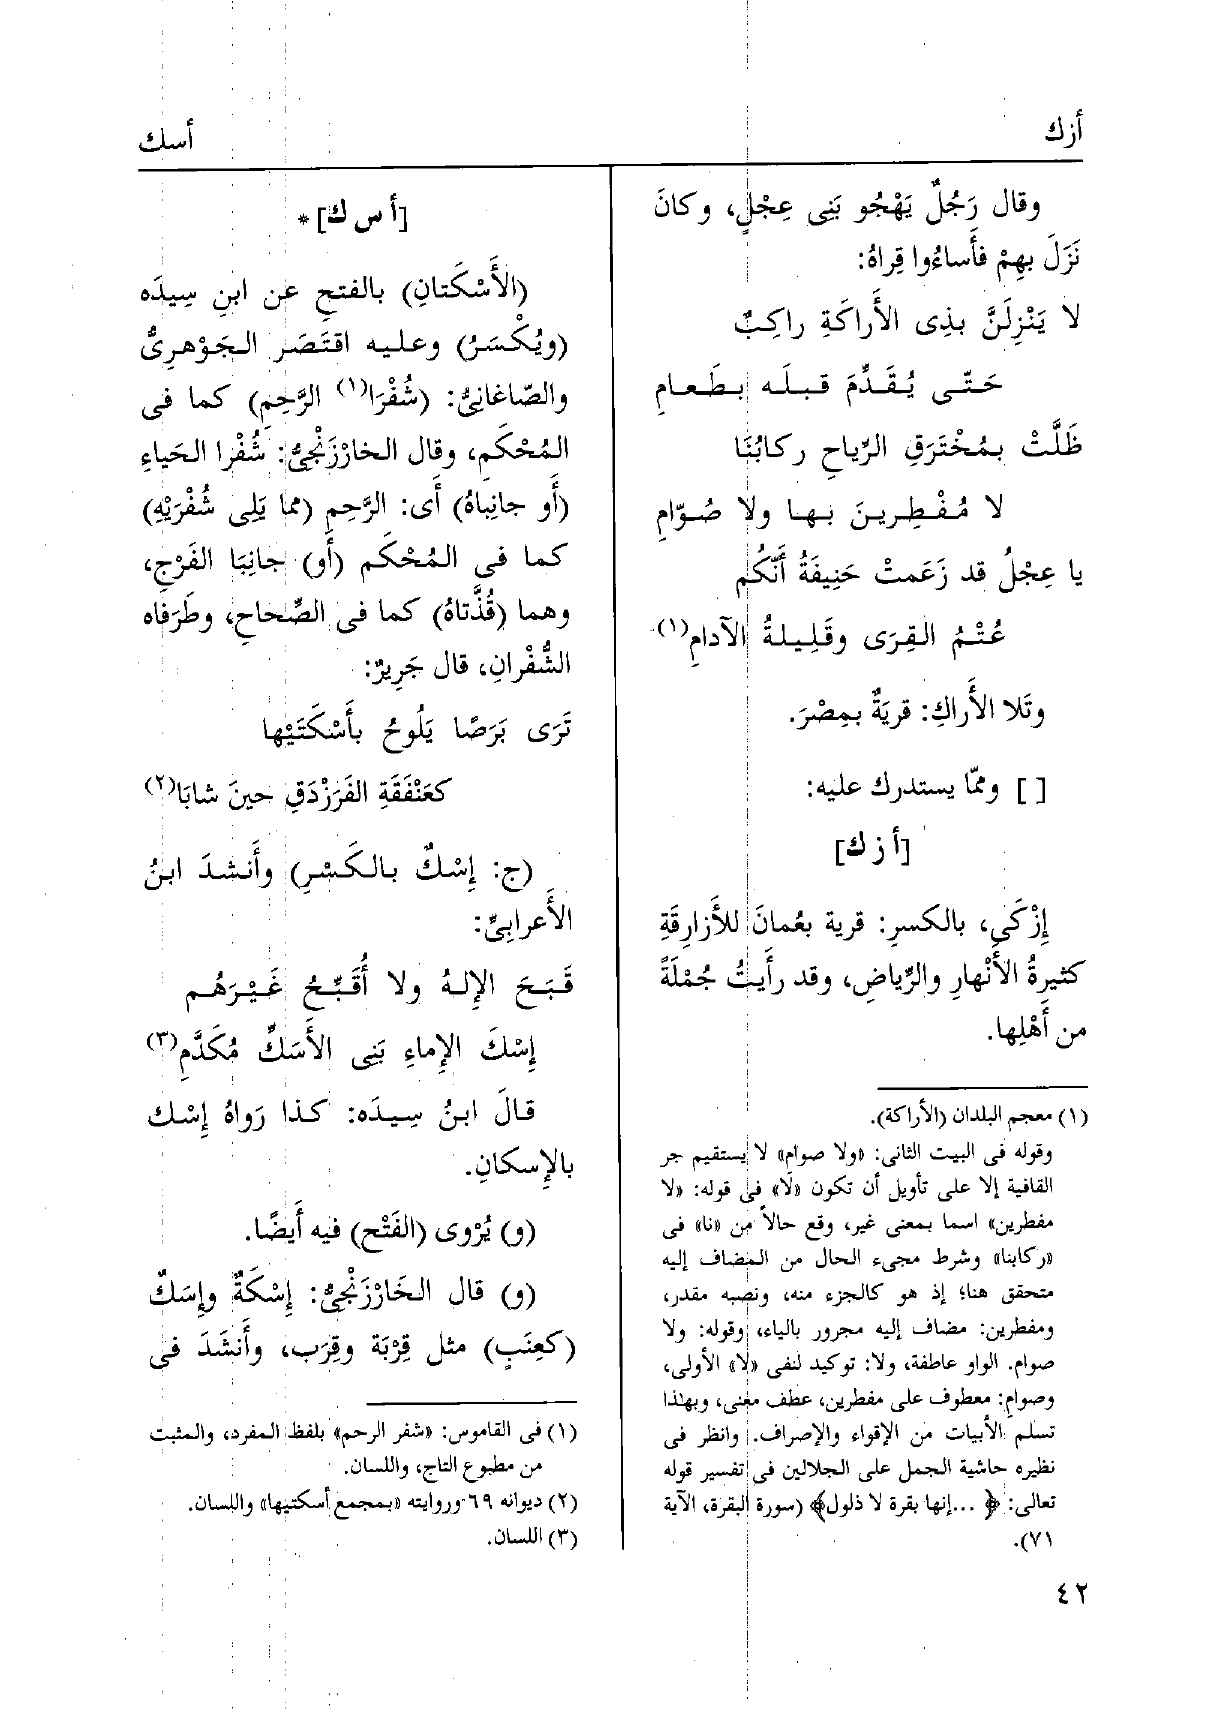 أزك
أسك
وقال رَجُلٌ يَهْجُو بَنِى عِجْلٍ، وكانَ
نَزَلَ بِهِمْ فأَساءُوا قِراهُ:
لا يَنْزِلَنَّ بذِى الأَراكَةِ راكِبٌ
حَتّى يُقَدَّمَ قبلَه بطَعامِ
ظَلَّتْ بمُخْتَرَقِ الرِّياحِ ركابُنَا
لا مُفْطِرِينَ بها ولا صُوّامِ
يا عِجْلُ قد زَعَمتْ حَنِيفَةُ أَنَّكُم
عُتْمُ القِرَى وقَلِيلةُ الآدامِ(١).
وتَلا الأَراكِ: قريَةٌ بمِصْرَ.
[ ] وممّا يستدرك عليه:
[أ ز ك]
إِزْكَى، بالكسرِ: قرية بعُمانَ للأَزارِقَةِ
كثيرةُ الأَنْهارِ والرِّياضِ، وقد رأَيتُ جُمْلَةً
من أَهْلِها.
(١) معجم البلدان (الأراكة).
وقوله فى البيت الثانى: «ولا صوام» لا يستقيم جر
القافية إلا على تأويل أن تكون «لَا» فى قوله: «لا
مفطرين» اسما بمعنى غير، وقع حالاً من «نا» فى
«ركابنا» وشرط مجىء الحال من المضاف إليه
متحقق هنا؛ إذ هو كالجزء منه، ونصبه مقدر،
ومفطرين: مضاف إليه مجرور بالياء، وقوله: ولا
صوام. الواو عاطفة، ولا: توكيد لنفى «لا» الأولى،
وصوامِ: معطوف على مفطرين، عطف معنى، وبهذا
تسلم الأبيات من الإقواء والإصراف. وانظر فى
نظيره حاشية الجمل على الجلالين فى تفسير قوله
تعالى: ﴿ ...إنها بقرة لا ذلول﴾ (سورة البقرة، الآية
٧١).
[أ س ك]*
(الأَسْكَتانِ) بالفتحِ عن ابنِ سِيدَه
(ويُكْسَرُ) وعليه اقتَصَر الجَوْهرِىُّ
والصّاغانِىُّ: (شُفْرَا(١) الرَّحِمِ) كما فى
المُحْكَمِ، وقال الخارْزَنْجِىُّ: شُفْرا الحَياءِ
(أَو جانِباهُ) أَى: الرَّحِمِ (مما يَلِى شُفْرَيْهِ)
كما فى المُحْكَم (أَو) جانِبَا الفَرْجِ،
وهما (قُذَّتاهُ) كما فى الصِّحاحِ، وطَرَفاه
الشُّفْرانِ، قال جَرِيرٌ:
تَرَى بَرَصًا يَلُوحُ بأَسْكَتَيْها
كعَنْفَقَةِ الفَرَزْدَقِ حينَ شابَا(٢)
(ج: إِسْكٌ بالكَسْرِ) وأَنشدَ ابنُ
الأَعرابِىِّ:
قَبَحَ الإِلهُ ولا أُقَبِّحُ غَيْرَهُم
إِسْكَ الإِماءِ بَنِى الأَسَكِّ مُكَدَّمِ(٣)
قالَ ابنُ سِيدَه: كذا رَواهُ إِسْك
بالإِسكانِ.
(و) يُرْوى (الفَتْح) فيه أَيضًا.
(و) قال الخَارْزَنْجِىُّ: إِسْكَةٌ وإِسَكٌ
(كعِنَبٍ) مثل قِرْبَة وقِرَب، وأَنشَدَ فى
(١) فى القاموس: «شفر الرحم» بلفظ المفرد، والمثبت
من مطبوع التاج، واللسان.
(٢) ديوانه ٦٩ وروايته «بمجمع أسكتيها» واللسان.
(٣) اللسان.
٤٢